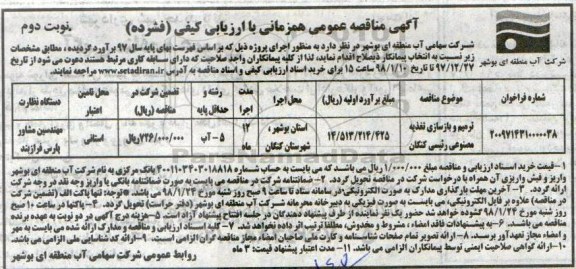 آگهی مناقصه عمومی همزمانی با ارزیابی کیفی (فشرده)
نوبت دوم
شرکت سهامی آب منطقه ای بوشهر در نظر دارد به منظور اجرای پروژه ذیل که بر اساس فهرست بهای پایه سال ۹۷ برآورد گردیده، مطابق مشخصات
زیر نسبت به انتخاب پیمانکار ذیصلاح اقدام نماید، لذا از کلیه پیمانکاران واجد صلاحیت که دارای سابقه کاری مرتبط هستند دعوت می شود از تاریخ
۹۷/۱۲/۲۷ تا تاریخ ۹۸/۱/۱۰ ساعت ۱۵ برای خرید اسناد ارزیابی کیفی و اسناد مناقصه به آدرس www.setadiran.ir مراجعه نمایند.
شرکت آب منطقه ای بوشهر
شماره فراخوان
موضوع مناقصه
مبلغ برآورد اولیه (ریال)
محل اجرا
مدت اجرا
رشته و حداقل پایه
تضمین شرکت در مناقصه (ریال)
محل تامین اعتبار
دستگاه نظارت
۲۰۰۹۷۱۴۳۱۰۰۰۰۰۳۸
ترمیم و بازسازی تغذیه مصنوعی رئیسی کنگان
۱۴/۵۱۳/۲۱۴/۴۲۵
استان بوشهر، شهرستان کنگان
۱۲ ماه
۵ - آب
۷۲۶/۰۰۰/۰۰۰ریال
استانی
مهندسین مشاور پارس فرازبند
۱-قیمت خرید اسناد ارزیابی و مناقصه مبلغ ۱/۰۰۰/۰۰۰ ریال می باشد که می بایست به حساب شماره ۴۰۰۱۱۰۳۴۰۳۰۱۸۸۱۸ بانک مرکزی به نام شرکت آب منطقه ای بوشهر
واریز و فیش واریزی آن همراه با درخواست شرکت در مناقصه تحویل گردد. ۲-ضمانتنامه شرکت در مناقصه می بایست به صورت ضمانتنامه بانکی یا واریز وجه نقد در وجه شرکت
ارائه گردد. ۳-آخرین مهلت بارگذاری مدارک به صورت الکترونیکی در سامانه ستاد تا ساعت ۹ صبح روز شنبه مورخ ۹۸/۱/۲۴ می باشد.
مناقصه) علاوه بر فایل الکترونیکی، می بایست به صورت فیزیکی به دبیرخانه محرمانه شرکت آب منطقه ای بوشهر (دفتر حراست) تحویل گردد. ۴-پاکتها در ساعت ۱۰ صبح
روز شنبه مورخ ۹۸/۱/۲۴ گشوده خواهد شد حضور یک نفر نماینده از طرف پیشنهاد دهندگان در جلسه افتتاح پیشنهاد آزاد است. ۵-هزینه درج آگهی در دو نوبت به عهده برنده
مناقصه می باشد. ۶-به پیشنهادات فاقد امضاء، مشروط و مخدوش، مطلقا ترتیب اثر داده نخواهد شد. ۷-کلیه اسناد ارزیابی و مناقصه و مدارک ارائه شده می بایست به مهر
و امضاء مجاز تعهدآور برسد. ۸-ارائه تصویر تمام صفحات شناسنامه و کارت ملی صاحبان امضاء مجاز مناقصه گران الزامی است. ۹-ارائه کد شناسایی ملی الزامی می باشد.
۱۰-ارائه گواهی صلاحیت ایمنی توسط پیمانکاران الزامی می باشد. ۱۱-مدت اعتبار پیشنهاد قیمت: ۳ ماه
روابط عمومی شرکت سهامی آب منطقه ای بوشهر